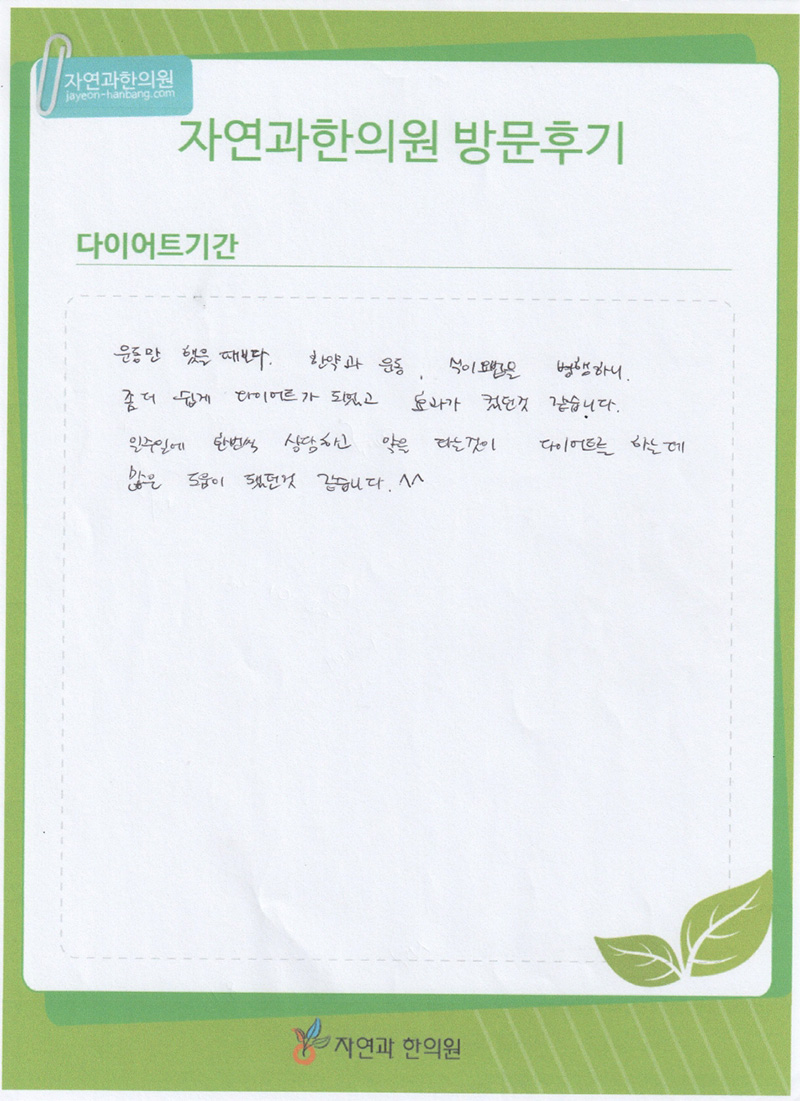 자연과한의원
jayeon-hanbang.com
자연과한의원 방문후기
다이어트기간
운동만 했을 때보다. 한약과 운동, 식이요법을 병행하니.
좀 더 쉽게 다이어트가 되었고 효과가 컸던것 같습니다.
일주일에 한번씩 상담하고 약을 타는것이 다이어트를 하는데
많은 도움이 됐던것 같습니다. ^^
자연과 한의원